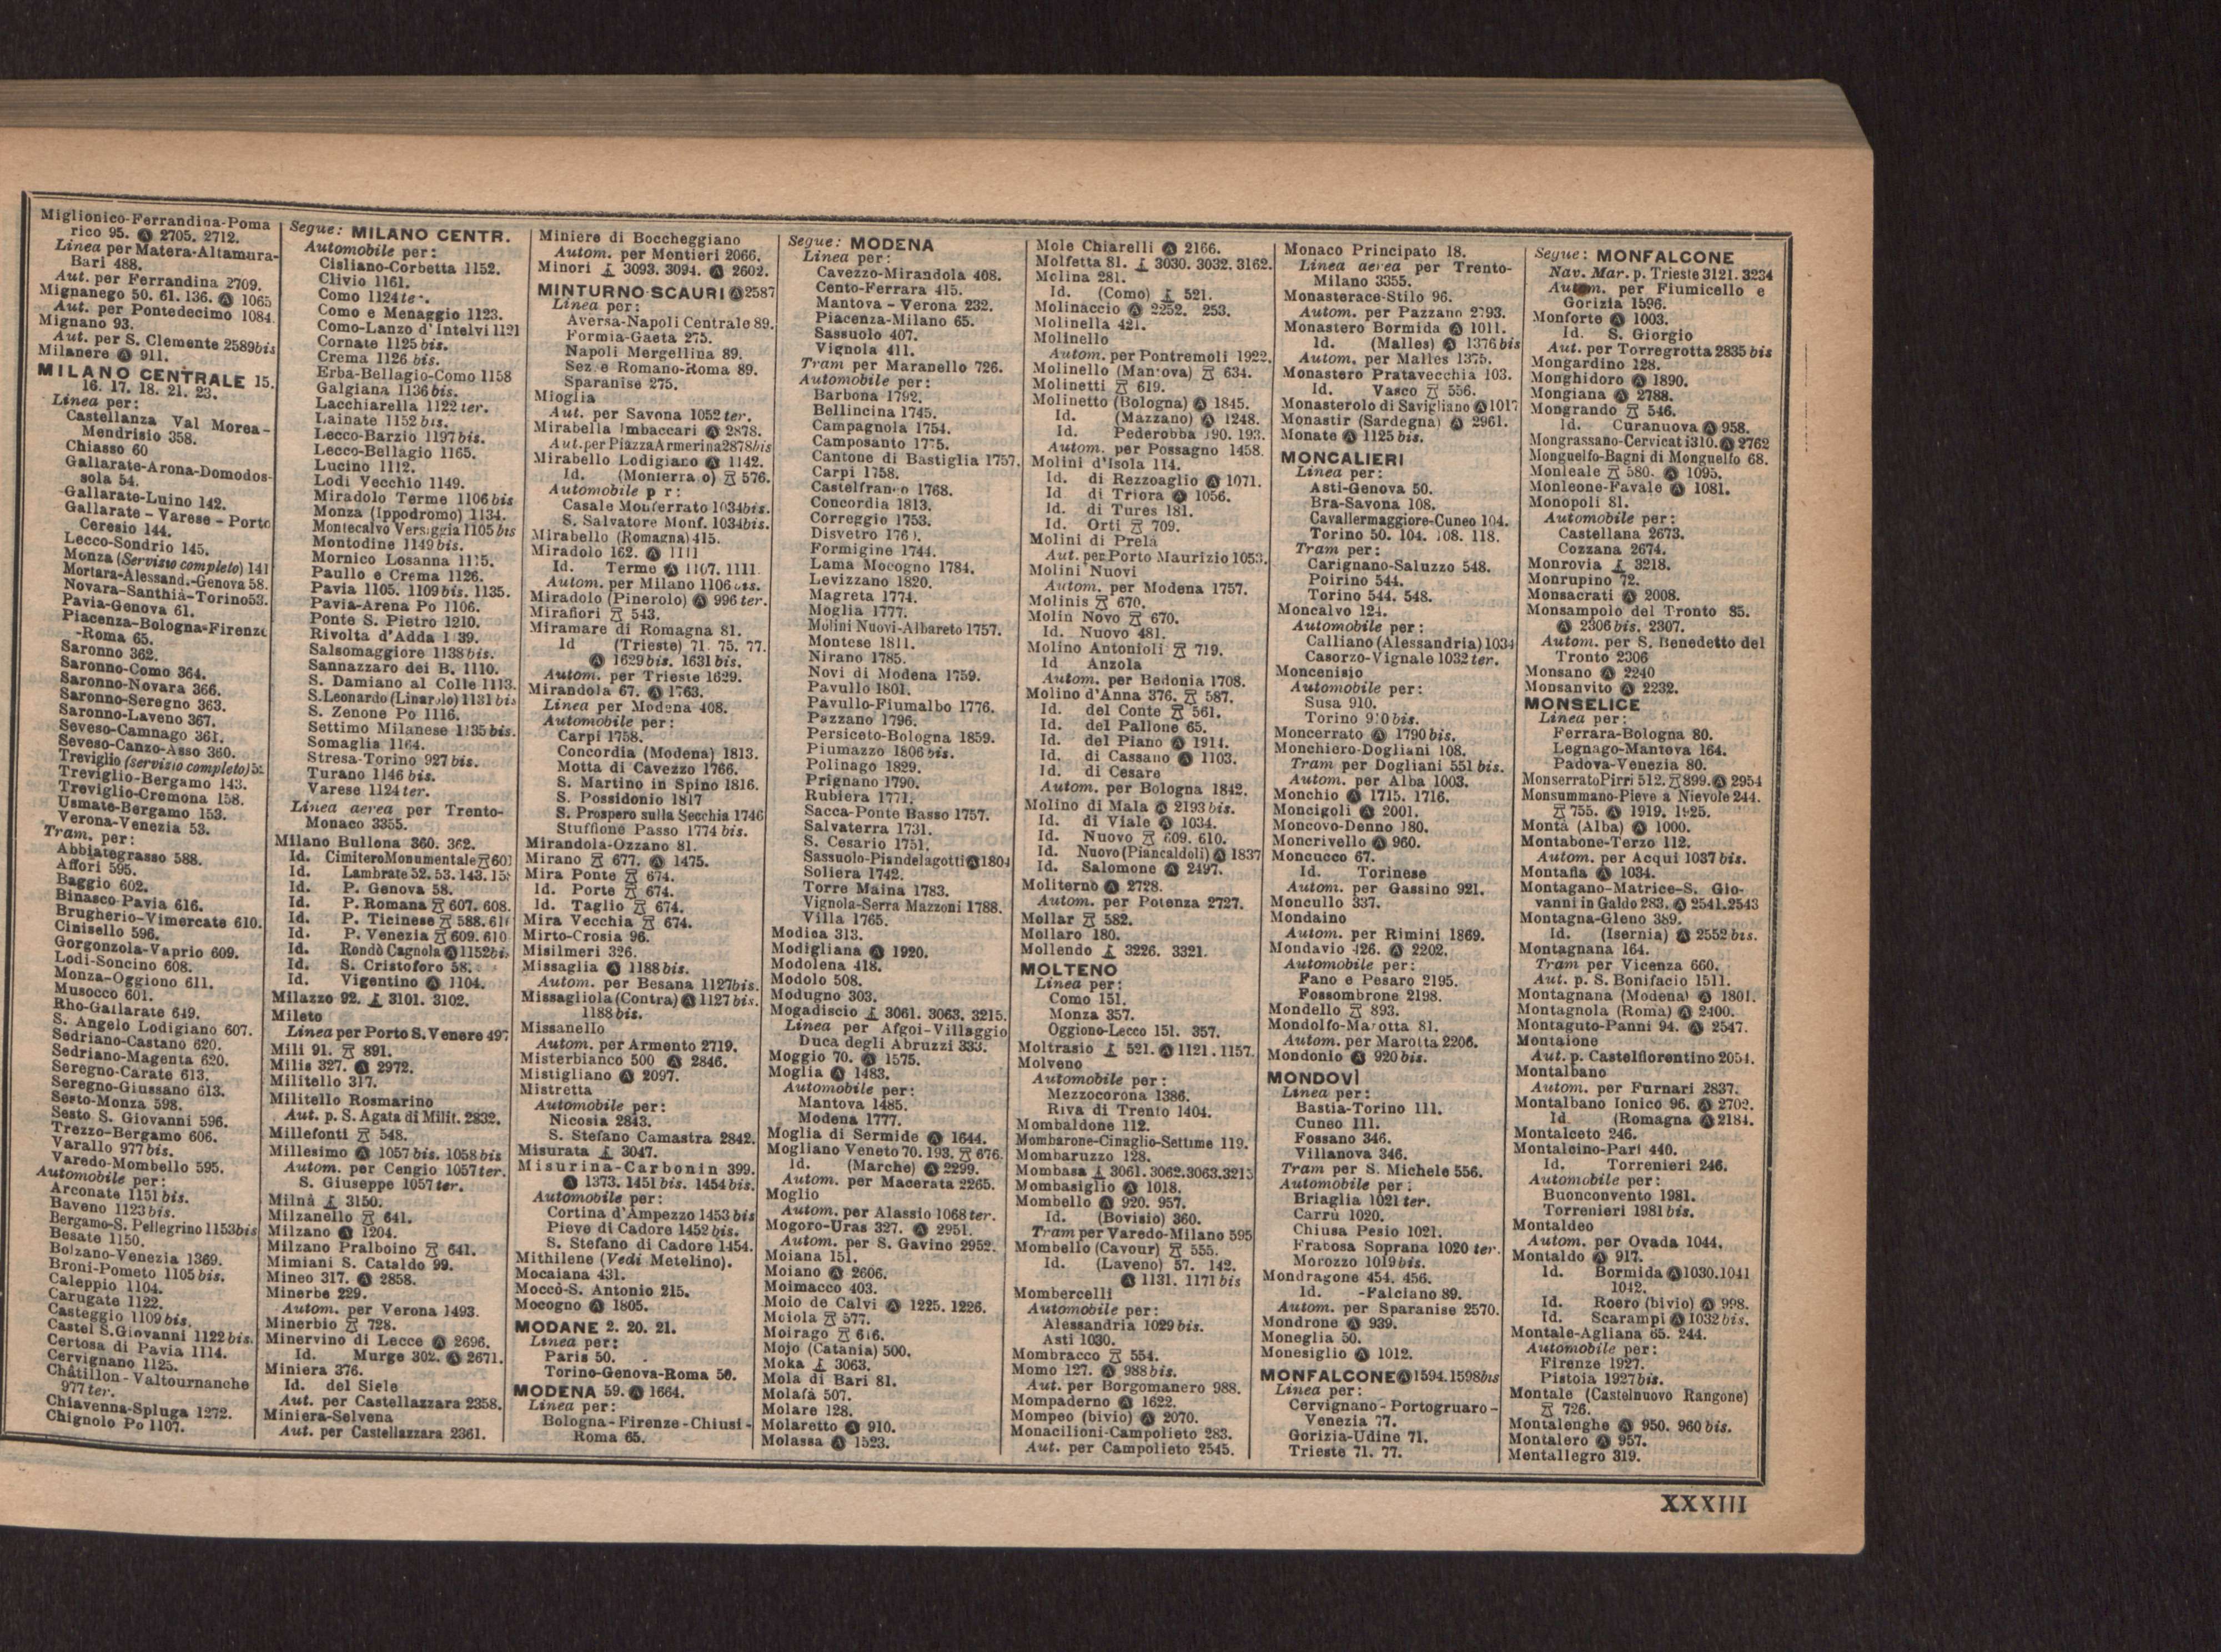 Miglionico-Ferrandina-Poma
rico 95. Ⓐ 2705. 2712.
Linea per Matera-Altamura-
Bari 488.
Aut. per Ferrandina 2709.
Mignanego 50. 61. 136. Ⓐ 1065
Aut. per Pontedecimo 1084.
Mignano 93.
Aut. per S. Clemente 2589bis
Milanere Ⓐ 911.
MILANO CENTRALE 15.
16. 17. 18. 21. 23.
Linea per:
Castellanza Val Morea-
Mendrisio 358.
Chiasso 60
Gallarate-Arona-Domodos-
sola 54.
Gallarate-Luino 142.
Gallarate - Varese - Porto
Ceresio 144.
Lecco-Sondrio 145.
Monza (Servizio completo) 141
Mortara-Alessand.-Genova 58.
Novara-Santhià-Torino 53.
Pavia-Genova 61.
Piacenza-Bologna-Firenze
-Roma 65.
Saronno 362.
Saronno-Como 364.
Saronno-Novara 366.
Saronno-Seregno 363.
Saronno-Laveno 367.
Seveso-Camnago 361.
Seveso-Canzo-Asso 360.
Treviglio (servizio completo)
Treviglio-Bergamo 143.
Treviglio-Cremona 158.
Usmate-Bergamo 153.
Verona-Venezia 53.
Tram. per:
Abbiategrasso 588.
Affori 595.
Baggio 602.
Binasco-Pavia 616.
Brugherio-Vimercate 610.
Cinisello 596.
Gorgonzola-Vaprio 609.
Lodi-Soncino 608.
Monza-Oggiono 611.
Musocco 601.
Rho-Gallarate 649.
S. Angelo Lodigiano 607.
Sedriano-Castano 620.
Sedriano-Magenta 620.
Seregno-Carate 613.
Seregno-Giussano 613.
Sesto-Monza 598.
Sesto S. Giovanni 596.
Trezzo-Bergamo 606.
Varallo 977bis.
Varedo-Mombello 595.
Automobile per:
Arconate 1151 bis.
Baveno 1123bis.
Bergamo-S. Pellegrino 1153bis
Besate 1150.
Bolzano-Venezia 1369.
Broni-Pometo 1105 bis.
Caleppio 1104.
Carugate 1122.
Casteggio 1109bis.
Castel S.Giovanni 1122 bis.
Certosa di Pavia 1114.
Cervignano 1125.
Châtillon-Valtournanche
977 ter.
Chiavenna-Spluga 1272.
Chignolo Po 1107.
Segue: MILANO CENTR.
Automobile per:
Cisliano-Corbetta 1152.
Clivio 1161.
Como 1124
Como e Menaggio 1123.
Como-Lanzo d'Intelvi 1121
Cornate 1125 bis.
Crema 1126 bis.
Erba-Bellagio-Como 1158
Galgiana 1136 bis.
Lacchiarella 1122 ter.
Lainate 1152 bis.
Lecco-Barzio 1197bis.
Lecco-Bellagio 1165.
Lucino 1112.
Lodi Vecchio 1149.
Miradolo Terme 1106 bis
Monza (Ippodromo) 1134.
Montecalvo Versiggia 1105 bis
Montodine 1149 bis.
Mornico Losanna
Paullo e Crema 1126.
Pavia 1105. 1109bis. 1135.
Pavia-Arena Po 1106.
Ponte S. Pietro 1210.
Rivolta d'Adda
Salsomaggiore 1138bis.
Sannazzaro dei B. 1110.
S. Damiano al Colle 1113.
S.Leonardo (Linarolo) 1131 bis
S. Zenone Po 1116.
Settimo Milanese 1135 bis.
Somaglia 1164.
Stresa-Torino 927 bis.
Turano 1146 bis.
Varese 1124 ter.
Linea aerea per Trento-
Monaco 3355.
Milano Bullona 360. 362.
Id. Cimitero Monumentale
Id. Lambrate 52. 53. 143.
Id. P. Genova 58.
Id. P. Romana 607. 608.
Id. P. Ticinese 588.
Id. P. Venezia 609. 610
Id. Rondò Cagnola Ⓐ 1152
Id. S. Cristoforo 58.
Id. Vigentino Ⓐ 1104.
Milazzo 92. 3101. 3102.
Mileto
Linea per Porto S. Venere 497
Mili 91. 891.
Milis 327. Ⓐ 2972.
Militello 317.
Militello Rosmarino
Aut. p. S. Agata di Milit. 2832.
Millefonti 548.
Millesimo Ⓐ 1057 bis. 1058 bis
Autom. per Cengio 1057 ter.
S. Giuseppe 1057 ter.
Milnà 3150.
Milzanello 641.
Milzano Ⓐ 1204.
Milzano Pralboino 641.
Mimiani S. Cataldo 99.
Mineo 317. Ⓐ 2858.
Minerbe 229.
Autom. per Verona 1493.
Minerbio 728.
Minervino di Lecce Ⓐ 2696.
Id. Murge 302. Ⓐ 2671.
Miniera 376.
Id. del Siele
Aut. per Castellazzara 2358.
Miniera-Selvena
Aut. per Castellazzara 2361.
Miniere di Boccheggiano
Autom. per Montieri 2066.
Minori 3093. 3094. Ⓐ 2602.
MINTURNO-SCAURI Ⓐ 2587
Linea per:
Aversa-Napoli Centrale 89.
Formia-Gaeta 275.
Napoli Mergellina 89.
Sez e Romano-Roma 89.
Sparanise 275.
Mioglia
Aut. per Savona 1052 ter.
Mirabella Imbaccari Ⓐ 2878.
Aut. per Piazza Armerina 2878bis
Mirabello Lodigiano Ⓐ 1142.
Id. (Monferra o) 576.
Automobile p r:
Casale Monferrato 1034bis.
S. Salvatore Monf. 1034bis.
Mirabello (Romagna) 415.
Miradolo 162. Ⓐ 1111
Id. Terme Ⓐ 1107. 1111.
Autom. per Milano 1106
Miradolo (Pinerolo) Ⓐ 996 ter.
Mirafiori 543.
Miramare di Romagna 81.
Id (Trieste) 71. 75. 77.
Ⓐ 1629bis. 1631 bis.
Autom. per Trieste 1629.
Mirandola 67. Ⓐ 1763.
Linea per Modena 408.
Automobile per:
Carpi 1758.
Concordia (Modena) 1813.
Motta di Cavezzo 1766.
S. Martino in Spino 1816.
S. Possidonio 1817
S. Prospero sulla Secchia 1746
Stuffione Passo 1774 bis.
Mirandola-Ozzano 81.
Mirano 677. Ⓐ 1475.
Mira Ponte 674.
Id. Porte 674.
Id. Taglio 674.
Mira Vecchia 674.
Mirto-Crosia 96.
Misilmeri 326.
Missaglia Ⓐ 1188 bis.
Autom. per Besana 1127bis.
Missagliola (Contra) Ⓐ 1127 bis.
1188 bis.
Missanello
Autom. per Armento 2719.
Misterbianco 500 Ⓐ 2846.
Mistigliano Ⓐ 2097.
Mistretta
Automobile per:
Nicosia 2843.
S. Stefano Camastra 2842.
Misurata 3047.
Misurina-Carbonin 399.
Ⓐ 1373. 1451 bis. 1454 bis.
Automobile per:
Cortina d'Ampezzo 1453 bis
Pieve di Cadore 1452 bis.
S. Stefano di Cadore 1454.
Mithilene (Vedi Metelino).
Mocaiana 431.
Moccò-S. Antonio 215.
Mocogno Ⓐ 1805.
MODANE 2. 20. 21.
Linea per:
Paris 50.
Torino-Genova-Roma 50.
MODENA 59. Ⓐ 1664.
Linea per:
Bologna-Firenze-Chiusi-
Roma 65.
Segue: MODENA
Linea per:
Cavezzo-Mirandola 408.
Cento-Ferrara 415.
Mantova - Verona 232.
Piacenza-Milano 65.
Sassuolo 407.
Vignola 411.
Tram per Maranello 726.
Automobile per:
Barbona 1792.
Bellincina 1745.
Campagnola 1754.
Camposanto 1775.
Cantone di Bastiglia 1757.
Carpi 1758.
Castelfranco 1768.
Concordia 1813.
Correggio 1753.
Disvetro
Formigine 1744.
Lama Mocogno 1784.
Levizzano 1820.
Magreta 1774.
Moglia 1777.
Molini Nuovi-Albareto 1757.
Montese 1811.
Nirano 1785.
Novi di Modena 1759.
Pavullo 1801.
Pavullo-Fiumalbo 1776.
Pazzano 1796.
Persiceto-Bologna 1859.
Piumazzo 1806 bis.
Polinago 1829.
Prignano 1790.
Rubiera 1771.
Sacca-Ponte Basso 1757.
Salvaterra 1731.
S. Cesario 1751.
Sassuolo-Piandelagotti Ⓐ 1804
Soliera 1742.
Torre Maina 1783.
Vignola-Serra Mazzoni 1788.
Villa 1765.
Modica 313.
Modigliana Ⓐ 1920.
Modolena 418.
Modolo 508.
Modugno 303.
Mogadiscio 3061. 3063. 3215.
Linea per Afgoi-Villaggio
Duca degli Abruzzi 333.
Moggio 70. Ⓐ 1575.
Moglia Ⓐ 1483.
Automobile per:
Mantova 1485.
Modena 1777.
Moglia di Sermide Ⓐ 1644.
Mogliano Veneto 70. 193. 676.
Id. (Marche) Ⓐ 2299.
Autom. per Macerata 2265.
Moglio
Autom. per Alassio 1068 ter.
Mogoro-Uras 327. Ⓐ 2951.
Autom. per S. Gavino 2952.
Moiana 151.
Moiano Ⓐ 2606.
Moimacco 403.
Moio de Calvi Ⓐ 1225. 1226.
Moiola 577.
Moirago 616.
Mojo (Catania) 500.
Moka 3063.
Mola di Bari 81.
Molafà 507.
Molare 128.
Molaretto Ⓐ 910.
Molassa Ⓐ 1523.
Mole Chiarelli Ⓐ 2166.
Molfetta 81. 3030. 3032. 3162.
Molina 281.
Id. (Como) 521.
Molinaccio Ⓐ 2252. 253.
Molinella 421.
Molinello
Autom. per Pontremoli 1922.
Molinello (Mantova) 634.
Molinetti 619.
Molinetto (Bologna) Ⓐ 1845.
Id. (Mazzano) Ⓐ 1248.
Id. Pederobba 190. 193.
Autom. per Possagno 1458.
Molini d'Isola 114.
Id. di Rezzoaglio Ⓐ 1071.
Id di Triora Ⓐ 1056.
Id. di Tures 181.
Id. Orti 709.
Molini di Prelà
Aut. per Porto Maurizio 1053.
Molini Nuovi
Autom. per Modena 1757.
Molinis 670.
Molin Novo 670.
Id. Nuovo 481.
Molino Antonioli 719.
Id Anzola
Autom. per Bedonia 1708.
Molino d'Anna 376. 587.
Id. del Conte 561.
Id. del Pallone 65.
Id. del Piano Ⓐ 1914.
Id. di Cassano Ⓐ 1103.
Id. di Cesare
Autom. per Bologna 1842.
Molino di Mala Ⓐ 2193 bis.
Id. di Viale Ⓐ 1034.
Id. Nuovo 609. 610.
Id. Nuovo (Piancaldoli) Ⓐ 1837
Id. Salomone Ⓐ 2497.
Moliterno Ⓐ 2728.
Autom. per Potenza 2727.
Mollar 582.
Mollaro 180.
Mollendo 3226. 3321.
MOLTENO
Linea per:
Como 151.
Monza 357.
Oggiono-Lecco 151. 357.
Moltrasio 521. Ⓐ 1121. 1157.
Molveno
Automobile per:
Mezzocorona 1386.
Riva di Trento 1404.
Mombaldone 112.
Mombarone-Cinaglio-Settime 119.
Mombaruzzo 128.
Mombasa 3061. 3062. 3063. 3215
Mombasiglio Ⓐ 1018.
Mombello Ⓐ 920. 957.
Id. (Bovisio) 360.
Tram per Varedo-Milano 595
Mombello (Cavour) 555.
Id. (Laveno) 57. 142.
Ⓐ 1131. 1171 bis
Mombercelli
Automobile per:
Alessandria 1029 bis.
Asti 1030.
Mombracco 554.
Momo 127. Ⓐ 988 bis.
Aut. per Borgomanero 988.
Mompaderno Ⓐ 1622.
Mompeo (bivio) Ⓐ 2070.
Monacilioni-Campolieto 283.
Aut. per Campolieto 2545.
Monaco Principato 18.
Linea aerea per Trento-
Milano 3355.
Monasterace-Stilo 96.
Autom. per Pazzano 2793.
Monastero Bormida Ⓐ 1011.
Id. (Malles) Ⓐ 1376 bis
Autom. per Malles 1375.
Monastero Pratavecchia 103.
Id. Vasco 556.
Monasterolo di Savigliano Ⓐ 1017
Monastir (Sardegna) Ⓐ 2961.
Monate Ⓐ 1125 bis.
MONCALIERI
Linea per:
Asti-Genova 50.
Bra-Savona 108.
Cavallermaggiore-Cuneo 104.
Torino 50. 104. 108. 118.
Tram per:
Carignano-Saluzzo 548.
Poirino 544.
Torino 544. 548.
Moncalvo 124.
Automobile per:
Calliano (Alessandria) 1034
Casorzo-Vignale 1032 ter.
Moncenisio
Automobile per:
Susa 910.
Torino 910 bis.
Moncerrato Ⓐ 1790 bis.
Monchiero-Dogliani 108.
Tram per Dogliani 551 bis.
Autom. per Alba 1003.
Monchio Ⓐ 1715. 1716.
Moncigoli Ⓐ 2001.
Moncovo-Denno 180.
Moncrivello Ⓐ 960.
Moncucco 67.
Id. Torinese
Autom. per Gassino 921.
Moncullo 337.
Mondaino
Autom. per Rimini 1869.
Mondavio 426. Ⓐ 2202.
Automobile per:
Fano e Pesaro 2195.
Fossombrone 2198.
Mondello 893.
Mondolfo-Marotta 81.
Autom. per Marotta 2206.
Mondonio Ⓐ 920 bis.
MONDOVÌ
Linea per:
Bastia-Torino 111.
Cuneo 111.
Fossano 346.
Villanova 346.
Tram per S. Michele 556.
Automobile per:
Briaglia 1021 ter.
Carrù 1020.
Chiusa Pesio 1021.
Frabosa Soprana 1020 ter.
Morozzo 1019bis.
Mondragone 454. 456.
Id. -Falciano 89.
Autom. per Sparanise 2570.
Mondrone Ⓐ 939.
Moneglia 50.
Monesiglio Ⓐ 1012.
MONFALCONE Ⓐ 1594. 1598bis
Linea per:
Cervignano-Portogruaro-
Venezia 77.
Gorizia-Udine 71.
Trieste 71. 77.
Segue: MONFALCONE
Nav. Mar. p. Trieste 3121. 3234
Autom. per Fiumicello e
Gorizia 1596.
Monforte Ⓐ 1003.
Id. S. Giorgio
Aut. per Torregrotta 2835 bis
Mongardino 128.
Monghidoro Ⓐ 1890.
Mongiana Ⓐ 2788.
Mongrando 546.
Id. Curanuova Ⓐ 958.
Mongrassano-Cervicati 310. Ⓐ 2762
Monguelfo-Bagni di Monguelfo 68.
Monleale 580. Ⓐ 1095.
Monleone-Favale Ⓐ 1081.
Monopoli 81.
Automobile per:
Castellana 2673.
Cozzana 2674.
Monrovia 3218.
Monrupino 72.
Monsacrati Ⓐ 2008.
Monsampolo del Tronto 85.
Ⓐ 2306 bis. 2307.
Autom. per S. Benedetto del
Tronto 2306
Monsano Ⓐ 2240
Monsanvito Ⓐ 2232.
MONSELICE
Linea per:
Ferrara-Bologna 80.
Legnago-Mantova 164.
Padova-Venezia 80.
Monserrato Pirri 512. 899. Ⓐ 2954
Monsummano-Pieve a Nievole 244.
755. Ⓐ 1919. 1925.
Montà (Alba) Ⓐ 1000.
Montabone-Terzo 112.
Autom. per Acqui 1037 bis.
Montafia Ⓐ 1034.
Montagano-Matrice-S. Gio-
vanni in Galdo 283. Ⓐ 2541. 2543
Montagna-Gleno 389.
Id. (Isernia) Ⓐ 2552 bis.
Montagnana 164.
Tram per Vicenza 660.
Aut. p. S. Bonifacio 1511.
Montagnana (Modena) Ⓐ 1801.
Montagnola (Roma) Ⓐ 2400.
Montaguto-Panni 94. Ⓐ 2547.
Montaione
Aut. p. Castelfiorentino 2054.
Montalbano
Autom. per Furnari 2837.
Montalbano Ionico 96. Ⓐ 2702.
Id (Romagna Ⓐ 2184.
Montalceto 246.
Montalcino-Pari 440.
Id. Torrenieri 246.
Automobile per:
Buonconvento 1981.
Torrenieri 1981 bis.
Montaldeo
Autom. per Ovada 1044.
Montaldo Ⓐ 917.
Id. Bormida Ⓐ 1030. 1041
1042.
Id. Roero (bivio) Ⓐ 998.
Id. Scarampi Ⓐ 1032 bis.
Montale-Agliana 65. 244.
Automobile per:
Firenze 1927.
Pistoia 1927 bis.
Montale (Castelnuovo Rangone)
726.
Montalenghe Ⓐ 950. 960 bis.
Montalero Ⓐ 957.
Mentallegro 319.
XXXIII